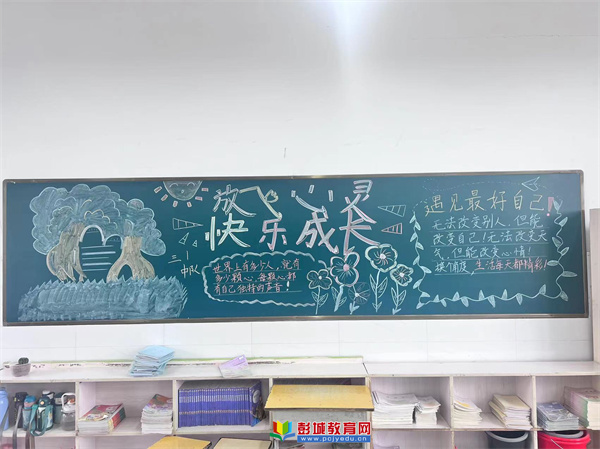 放飞心灵
快乐成长
三一
中队
世界上有多少人，就有
多少颗心，每颗心都
有自己独特的声音！
遇见最好自己！
无法改变别人，但能
改变自己！无法改变天
气，但能改变心情！
换个角度，生活每天都精彩！
彭城教育网
www.pcjyedu.cn